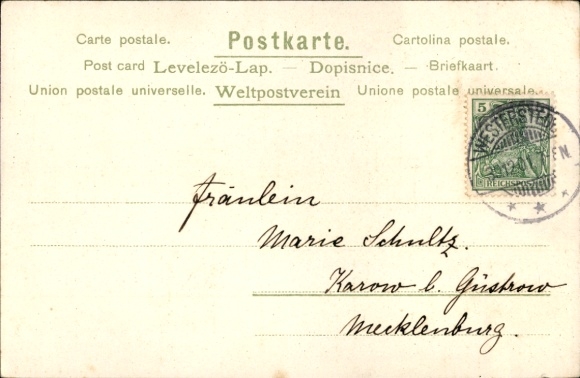 Carte postale. Postkarte. Cartolina postale.
Post card Levelezö-Lap. — Dopisnice. — Briefkaart.
Union postale universelle. Weltpostverein Unione postale universale.
5
REICHSPOST
Fräulein
Marie Schultz.
Karow b. Güstrow
Mecklenburg.